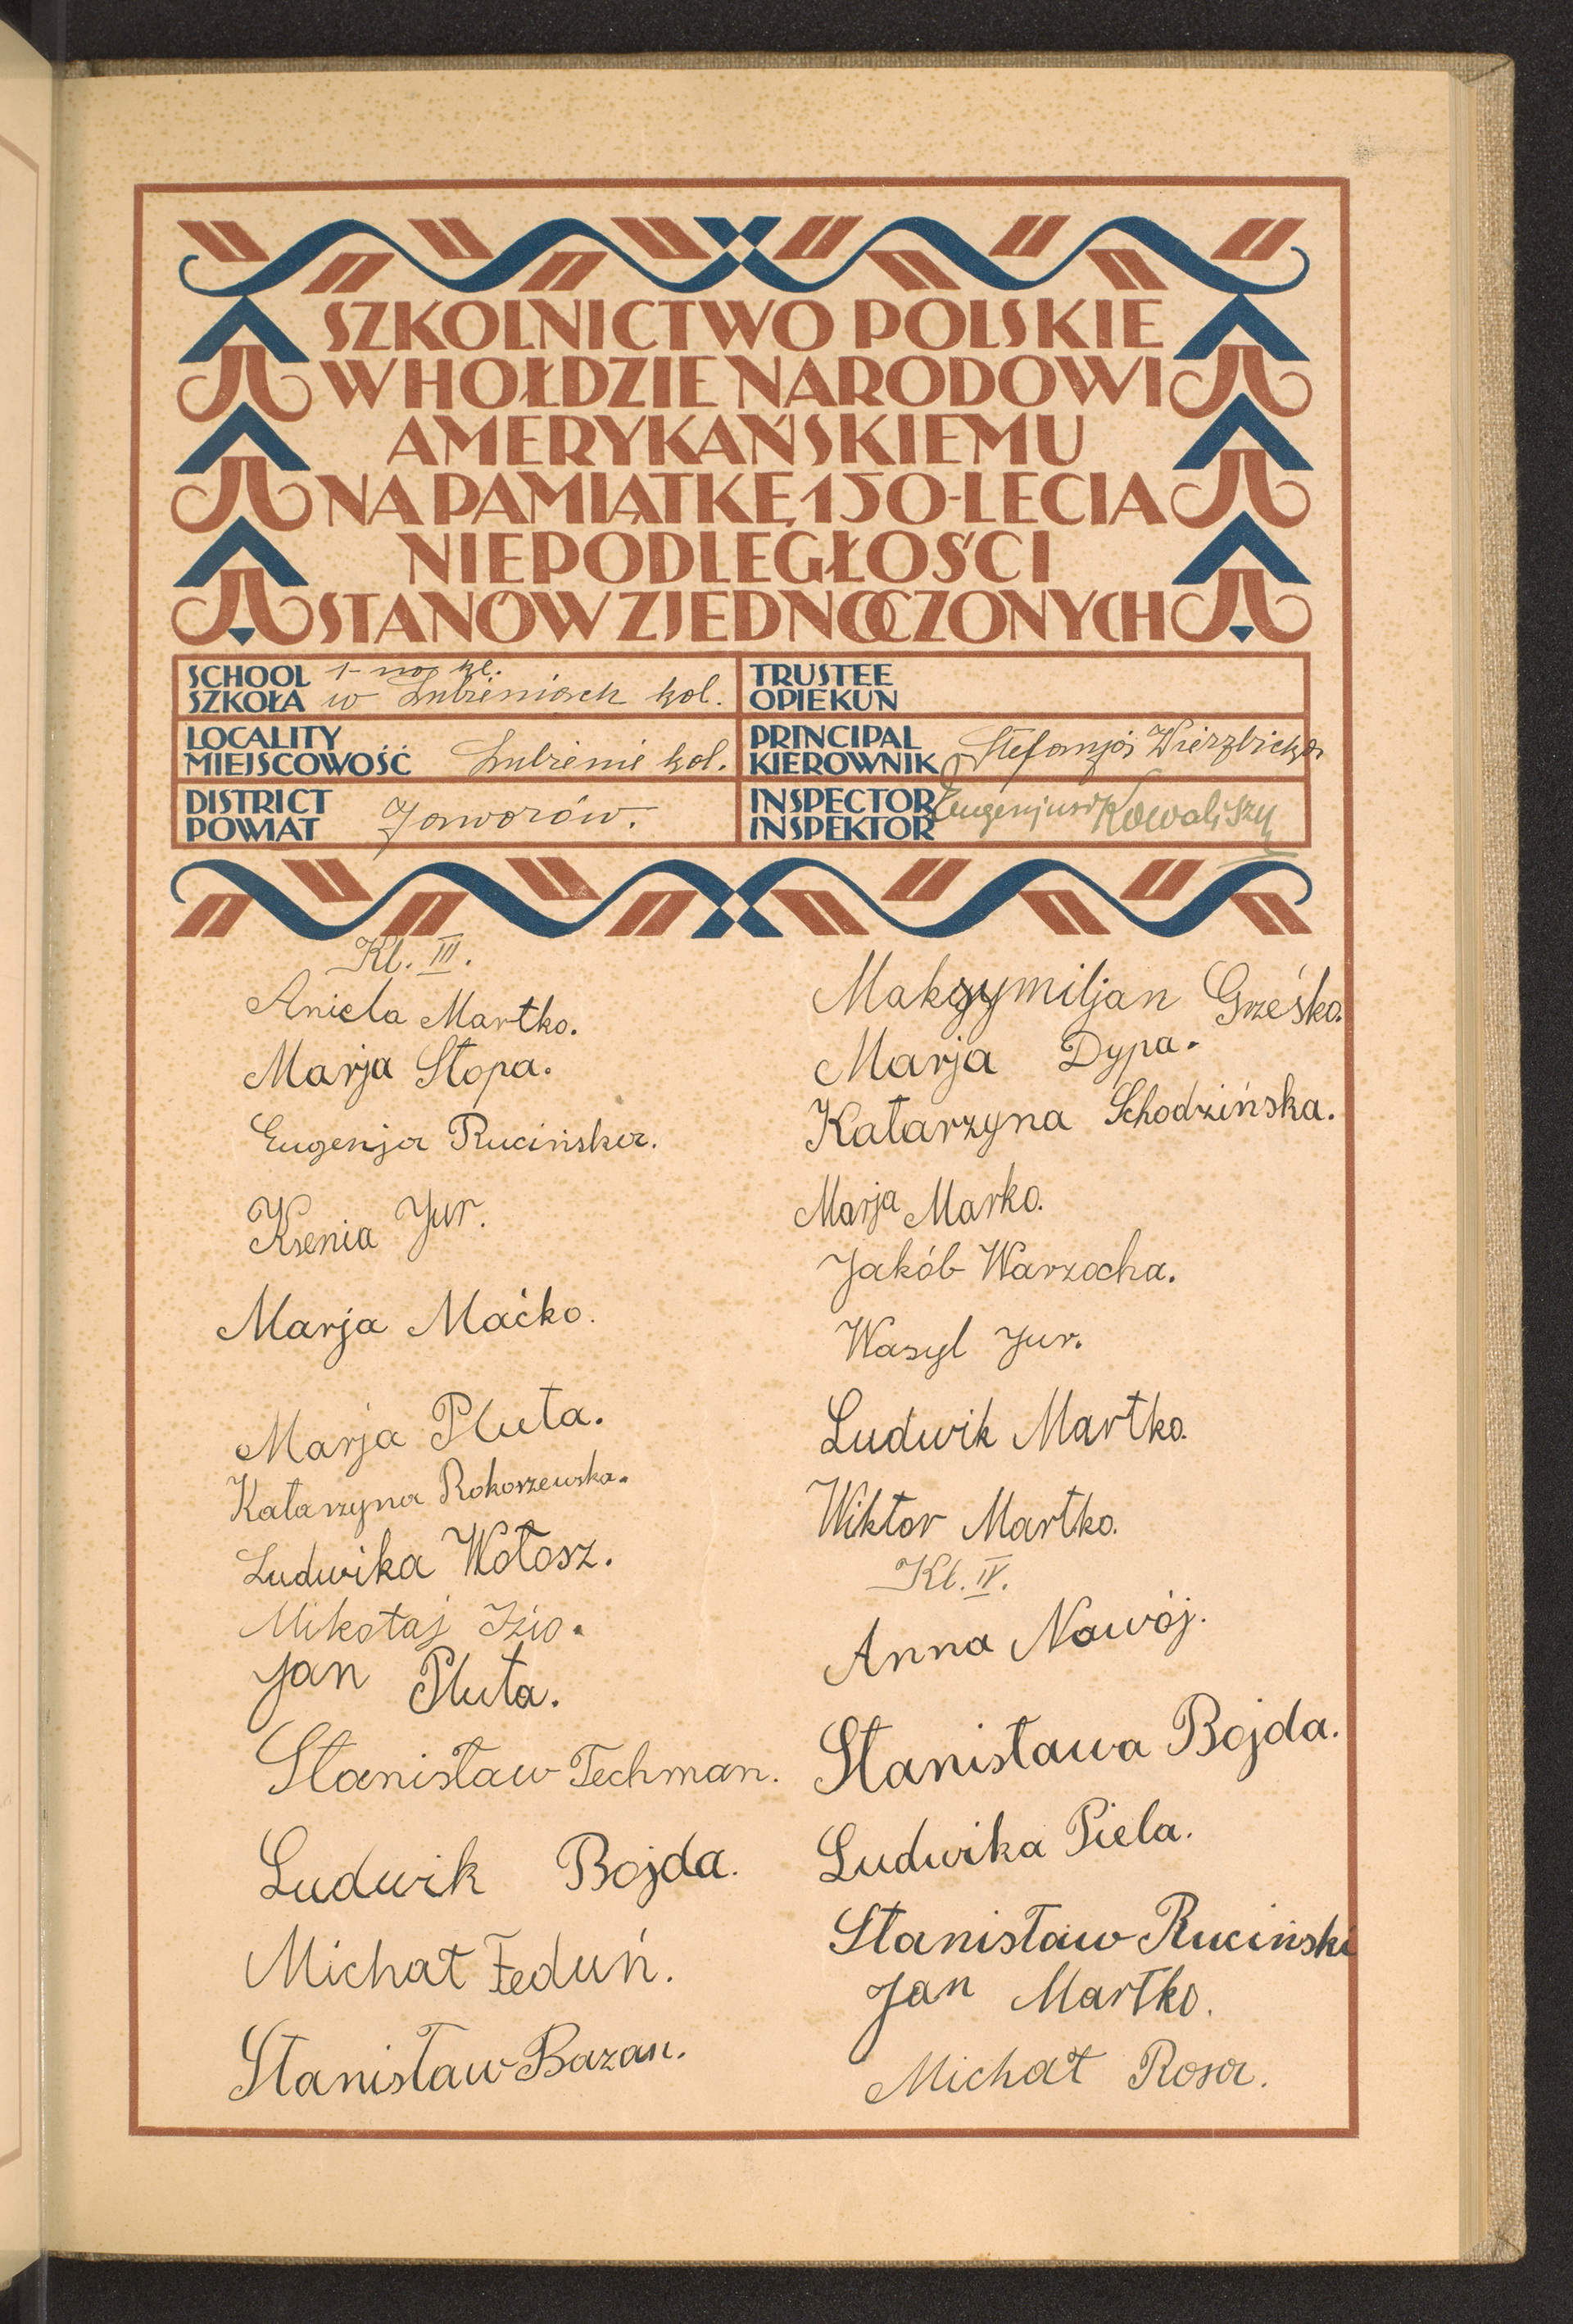 SZKOLNICTWO POLSKIE
W HOŁDZIE NARODOWI
AMERYKAŃSKIEMU
NA PAMIĄTKĘ 150-LECIA
NIEPODLEGŁOŚCI
STANÓW ZJEDNOCZONYCH
SCHOOL
SZKOŁA
1-no kl.
w Lubieniach kol.
TRUSTEE
OPIEKUN
LOCALITY
MIEJSCOWOŚĆ
Lubienie kol.
PRINCIPAL
KIEROWNIK
Stefanja Wierzbicka
DISTRICT
POWIAT
Jaworów.
INSPECTOR
INSPEKTOR
Eugenjusz Kowaliszyn
Kl. III.
Aniela Martko.
Marja Stopa.
Eugenja Rucińska.
Ksenia Jur.
Marja Maćko.
Marja Pluta.
Katarzyna Rokoszewska.
Ludwika Wołosz.
Mikołaj Izio.
Jan Pluta.
Stanisław Techman.
Ludwik Bojda.
Michał Feduń.
Stanisław Bazan.
Maksymiljan Grześko.
Marja Dypa.
Katarzyna Schodzińska.
Marja Marko.
Jakób Warzocha.
Wasyl Jur.
Ludwik Martko.
Wiktor Martko.
Kl. IV.
Anna Nawój.
Stanisława Bojda.
Ludwika Piela.
Stanisław Ruciński
Jan Martko.
Michał Rosa.